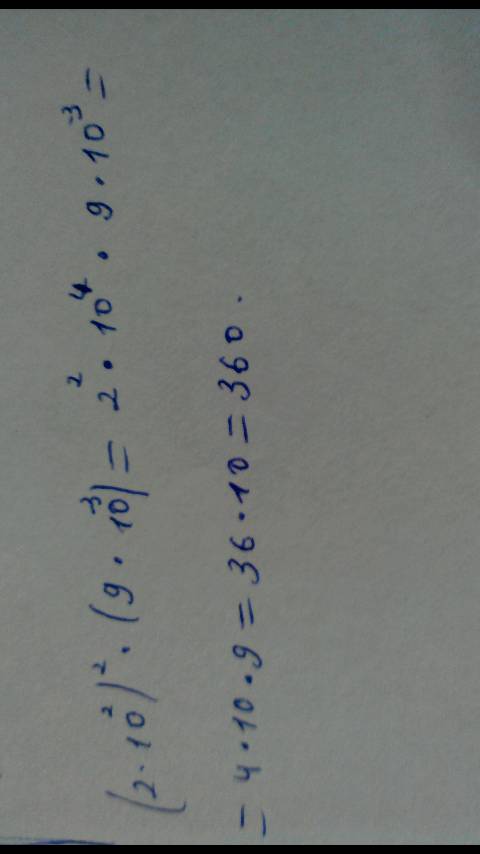 (2·10²)²·(9·10⁻³)=2²·10⁴·9·10⁻³=
=4·10·9=36·10=360.